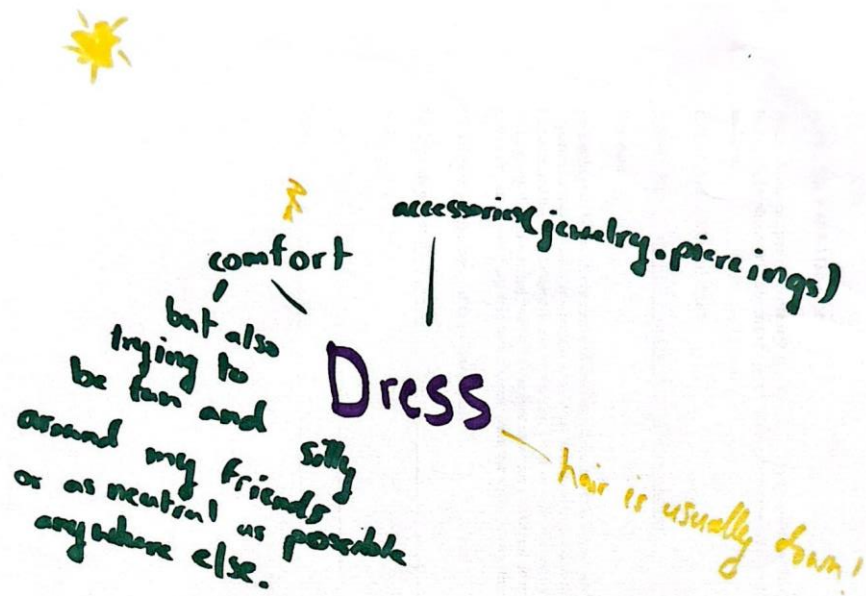 accessories(jewelry, piercings)
comfort
but also
trying to
be fun and silly
around my friends
or as neutral as possible
anywhere else.
Dress
hair is usually down!